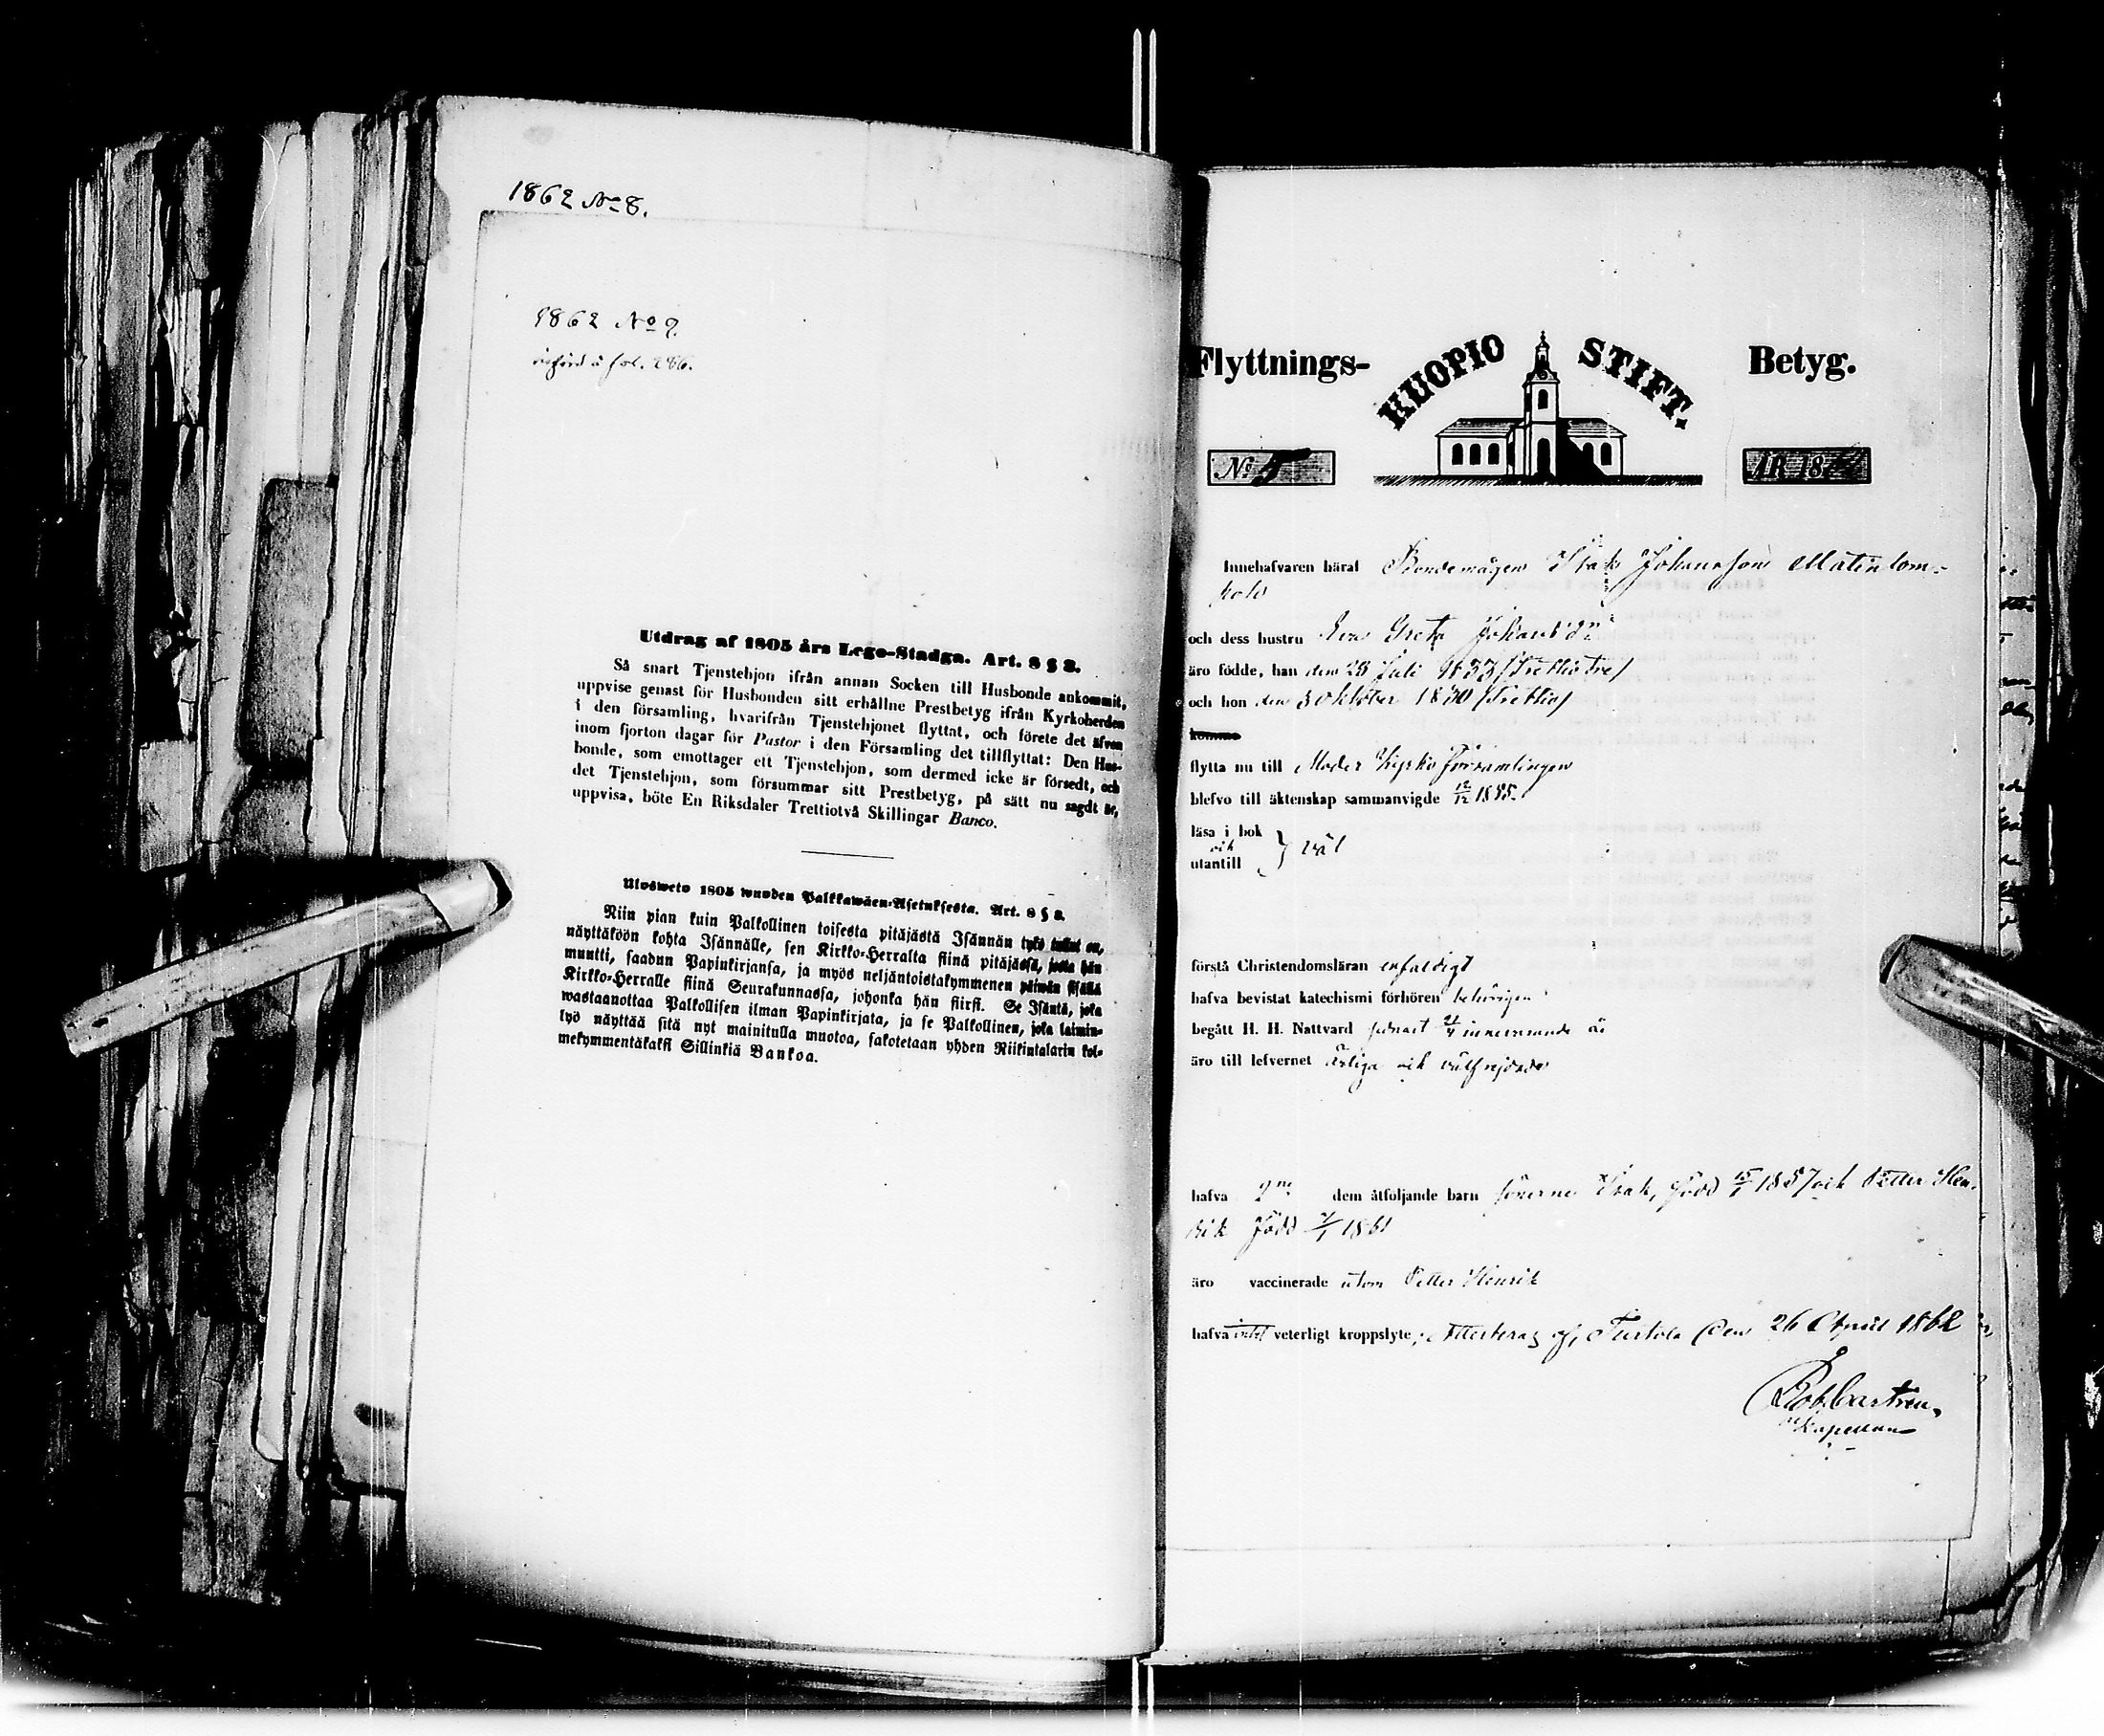 1862 No 8.
1862 No 9.
införd å fol. 286.
Utdrag af 1805 års Lego-Stadga. Art. 8 § 3.
Så snart Tjenstehjon ifrån annan Socken till Husbonde ankommit,
uppvise genast för Husbonden sitt erhållne Prestbetyg ifrån Kyrkoherden
i den församling, hvarifrån Tjenstehjonet flyttat, och förete det äfven
inom fjorton dagar för Pastor i den Församling det tillflyttat: Den Hus-
bonde, som emottager ett Tjenstehjon, som dermed icke är försedt, och
det Tjenstehjon, som försummar sitt Prestbetyg, på sätt nu sagdt är,
uppvisa, böte En Riksdaler Trettiotvå Skillingar Banco.
Ulosweto 1805 wuoden Palkkawäen-Asetuksesta. Art. 8 § 3.
Niin pian kuin Palkollinen toisesta pitäjästä Isännän tykö tullut on,
näyttäköön kohta Isännälle, sen Kirkko-Herralta siinä pitäjässä, josta hän
muutti, saadun Papinkirjansa, ja myös neljäntoistakymmenen päiwän sisällä
Kirkko-Herralle siinä Seurakunnassa, johonka hän siirsi. Se Isäntä, joka
wastaanottaa Palkollisen ilman Papinkirjata, ja se Palkollinen, joka laimin-
lyö näyttää sitä nyt mainitulla muotoa, sakotetaan yhden Riikintalarin kol-
mekymmentäkaksi Sillinkiä Bankoa.
Flyttnings- KUOPIO STIFT. Betyg.
No 5 ÅR 18
Innehafvaren häraf Bondemågen Isak Johansson Matinlom-
polo
och dess hustru Eva Greta Johansd:r
äro födde, han den 28 Juli 1833 (trettiotre)
och hon den 3 Oktober 1830 (trettio)
komma
flytta nu till Moder Kyrko församlingen
blefvo till äktenskap sammanvigde 12/12 1855.
läsa i bok
och } väl
utantill
förstå Christendomsläran enfaldigt
hafva bevistat katechismi förhören behörigen
begått H. H. Nattvard senast 21/4 innevarande år
äro till lefvernet ärliga och välfrejdade
hafva 2ne dem åtföljande barn sönerne Isak, född 15/1 1857 och Petter Hen-
rik född 2/1 1861
äro vaccinerade utom Petter Henrik
hafva intet veterligt kroppslyte; Attesteras af, Turtola den 26 April 1862
Rob. Castrén,
Kapellan